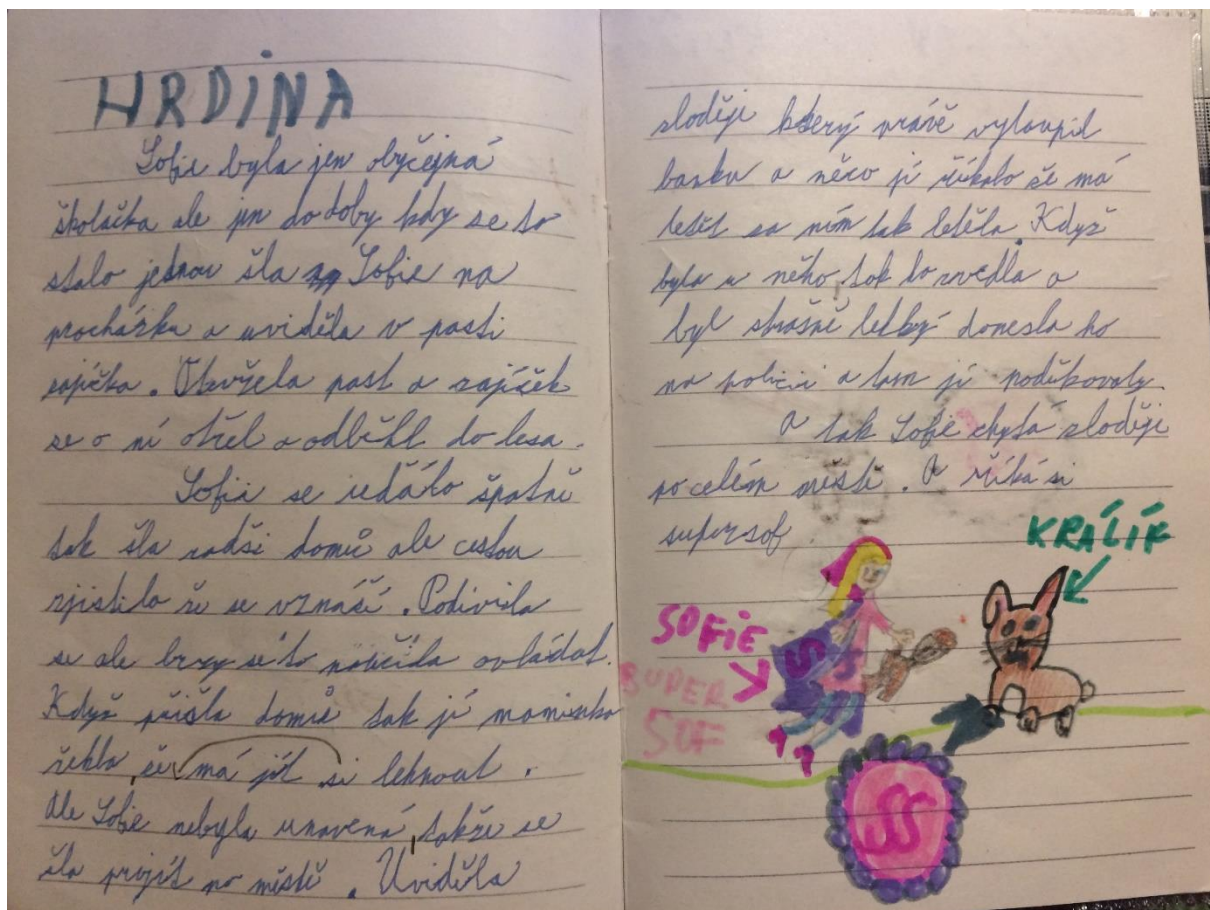 HRDINA
Sofie byla jen obyčejná
školačka ale jen do doby kdy se to
stalo jednou šla Sofie na
procházku a uviděla v pasti
zajíčka. Otevřela past a zajíček
se o ní otřel a odběhl do lesa.
Sofii se udělalo špatně
tak šla radši domů ale cestou
zjistila že se vznáší. Podivila
se ale brzy se to naučila ovládat.
Když přišla domů tak jí maminka
řekla, že má jít si lehnout.
Ale Sofie nebyla unavená, takže se
šla projít po městě. Uviděla
zloděje který právě vyloupil
banku a něco jí říkalo že má
letět za ním tak letěla. Když
byla u něho tak ho zvedla a
byl strašně lehký donesla ho
na policii a tam jí poděkovaly.
A tak Sofie chytá zloděje
po celém městě. A říká si
supersof
KRÁLÍK
SOFIE
SUPER
SOF
S
S
SS